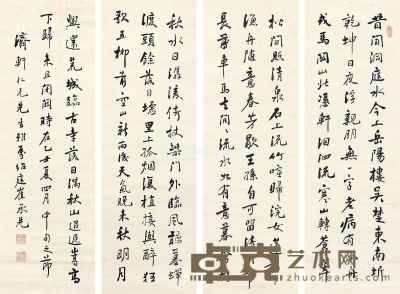 昔聞洞庭水今上岳陽樓吳楚東南坼
乾坤日夜浮親朋無一字老病有孤舟
戎馬關山北憑軒涕泗流寒山轉蒼翠
松間照清泉石上流竹喧歸浣女蓮動下
漁舟隨意春芳歇王孫自可留清川帶
長薄車馬去閒〻流水如有意暮禽相
秋水日潺湲倚杖柴門外臨風聽暮蟬
渡頭餘落日墟里上孤煙復值接輿醉狂
歌五柳前空山新雨後天氣晚來秋明月
與還荒城臨古渡落日滿秋山迢遞嵩高
下歸來且閉關時在乙丑夏四月中旬之節
濟軒仁兄先生雅屬紹庭崔承先